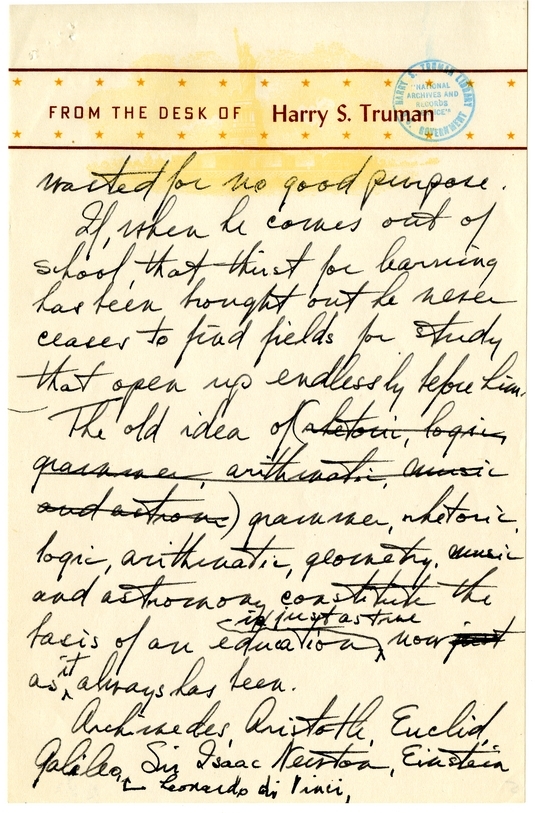 FROM THE DESK OF Harry S. Truman
HARRY S. TRUMAN LIBRARY
"NATIONAL
ARCHIVES AND
RECORDS
SERVICE"
U.S. GOVERNMENT
wasted for no good purpose.
If, when he comes out of
school, that thirst for learning
has been brought out he never
ceases to find fields for study
that open up endlessly before him.
The old idea of (rhetoric, logic,
grammer, arithmatic, music
and astrono) grammer, rhetoric,
logic, arithmatic, geometry, music
and astronomy constitute the
is just as true
basis of an education, now just
as it always has been.
Archimedes, Aristotle, Euclid,
Galileo, Sir Isaac Newton, Einstein
Leonardo di Vinci,